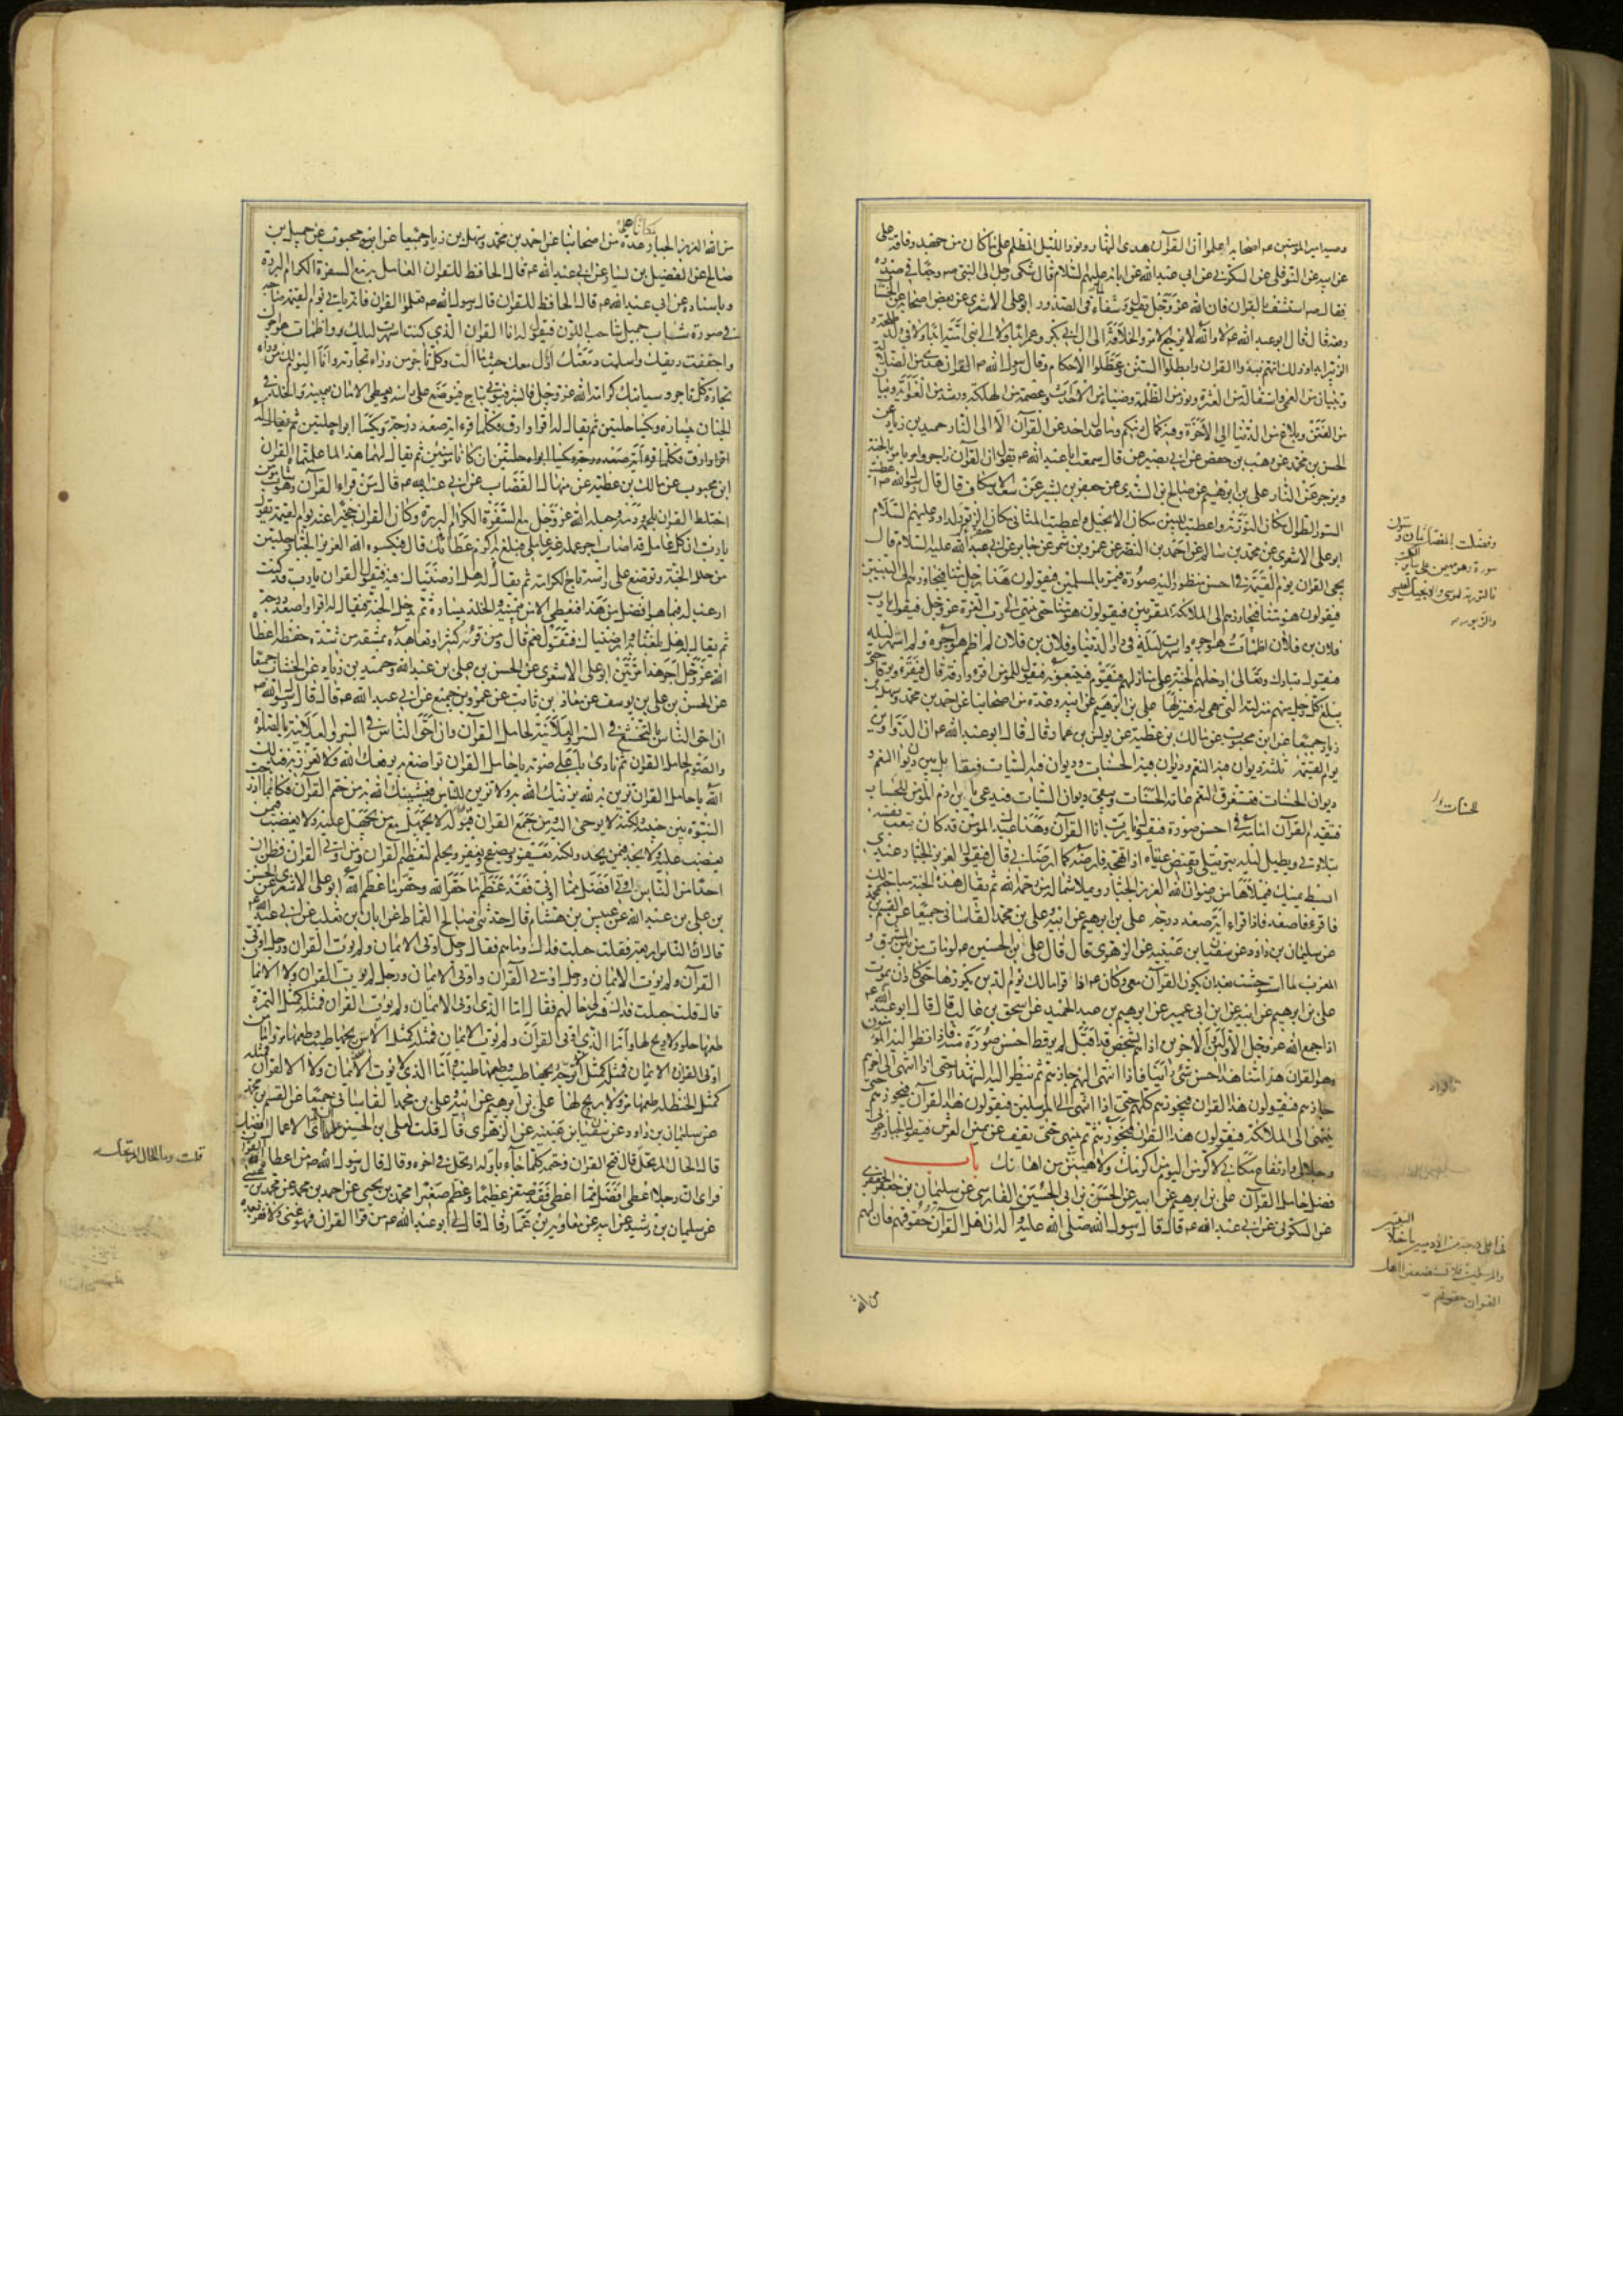 وصية امير المؤمنين عم اصحابه اعلموا ان القرآن هدى النهار ونور الليل المظلم على ما كان من جهد وفاقة على
عن ابيه عن النوفلى عن السكونى عن ابى عبد الله عن ابائه عليهم السلام قال شكى رجل الى النبى صم وجعا فى صدره
فقال صم استشف بالقران فان الله عز وجل يقول وشفاء لما فى الصدور ابو على الاشعرى عن بعض اصحابه عن الخشاب
رفعه قال قال ابو عبد الله عم لا والله لا يرجع الامر والخلافة الى ال ابى بكر وعمر ابدا ولا الى بنى امية ابدا ولا فى ولد طلحة و
الزبير ابدا وذلك انهم نبذوا القران وابطلوا السنن وعطلوا الاحكام وقال رسول الله صم القران هدى من الضلالة
وتبيان من العمى واستقالة من العثرة ونور من الظلمة وضياء من الاحداث وعصمة من الهلكة ورشد من الغواية وبيان
من الفتن وبلاغ من الدنيا الى الاخرة وفيه كمال دينكم وما عدل احد عن القرآن الا الى النار حميد بن زياد عن
الحسن بن محمد عن وهيب بن حفص عن ابى بصير عن قال سمعت ابا عبد الله عم يقول ان القرآن زاجر وامر يامر بالجنة
ويزجر عن النار على بن ابرهيم عن صالح بن السندى عن جعفر بن بشير عن سعد الاسكاف قال قال رسول الله صم اعطيت
السور الطول مكان التورية واعطيت المئين مكان الانجيل واعطيت المثانى مكان الزبور لداود عليهم السلام
ابو على الاشعرى عن محمد بن سالم عن احمد بن النضر عن عمرو بن شمر عن جابر عن ابى عبد الله عليه السلام قال
يجى القران يوم القيمة فى احسن منظور اليه صورة فيمر بالمسلمين فيقولون هذا رجل منا فيجاوزهم الى النبيين
فيقولون هو منا فيجاوزهم الى الملائكة المقربين فيقولون هو منا حتى ينتهى الى رب العزة عز وجل فيقول يا رب
فلان بن فلان اظمات هواجره واسهرت ليله فى دار الدنيا وفلان بن فلان لم اظمئ هواجره ولم اسهر ليله
فيقول تبارك وتعالى ادخلهم الجنة على منازلهم فيقوم فيتبعونه فيقول للمؤمن اقرء وارقه قال فيقرء ويرقا حتى
يبلغ كل رجل منهم منزلته التى هى له فينزلها على بن ابرهيم عن ابيه وعدة من اصحابنا عن احمد بن محمد وسهل بن
زياد جميعا عن ابن محبوب عن مالك بن عطية عن يونس بن عمار قال قال ابو عبد الله عم ان الدواوين
يوم القيمة ثلثة ديوان فيه النعم وديوان فيه الحسنات وديوان فيه السيئات فيقابل بين ديوان النعم و
ديوان الحسنات فتستغرق النعم عامة الحسنات ويبقى ديوان السيئات فيدعى بابن ادم المؤمن للحساب
فيتقدم القرآن امامه فى احسن صورة فيقول يا رب انا القرآن وهذا عبدك المؤمن قد كان يتعب نفسه
بتلاوتى ويطيل ليله بترتيلى وتفيض عيناه اذا تهجد فارضه كما ارضانى قال فيقول العزيز الجبار عبدى
ابسط يمينك فيملاها من رضوان الله العزيز الجبار ويملا شماله من رحمة الله ثم يقال هذه الجنة مباحة لك
فاقرء فاصعد فاذا قراء اية صعد درجة على بن ابرهيم عن ابيه وعلى بن محمد القاسانى جميعا عن القسم بن محمد
عن سليمان بن داود عن سفيان بن عيينه عن الزهرى قال قال على بن الحسين عم لو مات من بين المشرق و
المغرب لما استوحشت بعد ان يكون القرآن معى وكان عم اذا قرا مالك يوم الدين يكررها حتى كاد ان يموت
على بن ابرهيم عن ابيه عن ابن ابى عمير عن ابرهيم بن عبد الحميد عن اسحق بن غالب قال قال ابو عبد الله عم
اذا جمع الله عز وجل الاولين والاخرين اذا هم بشخص قد اقبل لم ير قط احسن صورة منه فاذا نظر اليه المؤمنون
وهو القران هذا منا هذا احسن شئ راينا فاذا انتهى اليهم جازهم ثم ينظر اليه الشهداء حتى اذا انتهى الى اخرهم
جازهم فيقولون هذا القران فيجوزهم كلهم حتى اذا انتهى الى المرسلين فيقولون هذا القرآن فيجوزهم حتى
ينتهى الى الملائكة فيقولون هذا القران فيجوزهم ثم ينتهى حتى يقف عن يمين العرش فيقول الجبار وعزتى
وجلالى وارتفاع مكانى لاكرمن اليوم من اكرمك ولاهينن من اهانك باب
فضل حامل القرآن على بن ابرهيم عن ابيه عن الحسن بن ابى الحسين الفارسى عن سليمان بن جعفر الجعفرى
عن السكونى عن ابى عبد الله عم قال قال رسول الله صلى الله عليه وآله ان اهل القرآن حقوقهم فان لهم
وفضلت بالمفصل ثمان وستون
سورة وهو مهيمن على سائر الكتب
فالتورية لموسى والانجيل لعيسى
والزبور
الحسنات
فى اعلى درجة من الادميين ما خلا النبيين
والمرسلين فلا تستضعفوا اهل
القران حقوقهم
من الله
من الله العزيز الجبار لمكانا عليا عدة من اصحابنا عن احمد بن محمد وسهل بن زياد جميعا عن ابن محبوب عن جميل بن
صالح عن الفضيل بن يسار عن ابى عبد الله عم قال الحافظ للقران العامل به مع السفرة الكرام البررة
وباسناده عن ابى عبد الله عم قال الحافظ للقران قال رسول الله صم تعلموا القران فانه ياتى يوم القيمة صاحبه
فى صورة شاب جميل شاحب اللون فيقول له انا القران الذى كنت اسهرت ليلك واظمات هواجرك
واجففت ريقك واسلت دمعتك اؤل معك حيثما الت وكل تاجر من وراء تجارته وانا اليوم لك من وراء
تجارة كل تاجر وسياتيك كرامة الله عز وجل فابشر فيؤتى بتاج فيوضع على راسه ويعطى الامان بيمينه والخلد فى
الجنان بيساره ويكسا حلتين ثم يقال له اقرا وارق فكلما قرء اية صعد درجة ويكسا ابواه حلتين ثم يقال له
اقرا وارق فكلما قرء اية صعد درجة ويكسا ابواه حلتين ان كانا مؤمنين ثم يقال لهما هذا لما علمتماه القران
ابن محبوب عن مالك بن عطية عن منهال القصاب عن ابى عبد الله عم قال من قراء القرآن وهو شاب مؤمن
اختلط القران بلحمه ودمه وجعله الله عز وجل مع السفرة الكرام البررة وكان القران حجيزا عنه يوم القيمة يقول
يا رب ان كل عامل قد اصاب اجر عمله غير عاملى فبلغ به اكرم عطائك قال فيكسوه الله العزيز الجبار حلتين
من حلل الجنة ويوضع على راسه تاج الكرامة ثم يقال له هل ارضيناك فيه فيقول القران يا رب قد كنت
ارغب له فيما هو افضل من هذا فيعطى الامن بيمينه والخلد بيساره ثم يدخل الجنة فيقال له اقرا واصعد درجة
ثم يقال له هل بلغنا به وارضيناك فيقول نعم قال ومن قرئه كثيرا وتعاهده بمشقة من شدة حفظه اعطاه
الله عز وجل اجر هذا مرتين ابو على الاشعرى عن الحسن بن على بن عبد الله وحميد بن زياد عن الخشاب جميعا
عن الحسن بن على بن يوسف عن معاذ بن ثابت عن عمرو بن جميع عن ابى عبد الله عم قال قال رسول الله صم
ان احق الناس بالتخشع فى السر والعلانية لحامل القرآن وان احق الناس فى السر والعلانية بالصلوة
والصوم لحامل القران ثم نادى باعلى صوته يا حامل القران تواضع به يرفعك الله ولا تعزز به فيذلك
الله يا حامل القران تزين به لله يزينك الله به ولا تزين به للناس فيشينك الله به من ختم القرآن فكانما ادرجت
النبوة بين جنبيه ولكنه لا يوحى اليه ومن جمع القران فنوله لا يجهل مع من يجهل عليه ولا يغضب فيمن
يغضب عليه ولا يحد فيمن يحد ولكنه يعفو ويصفح ويغفر ويحلم لتعظيم القران ومن اوتى القران فظن ان
احدا من الناس اوتى افضل مما اوتى فقد عظم ما حقر الله وحقر ما عظم الله ابو على الاشعرى عن الحسن
بن على بن عبد الله عن عبيس بن هشام قال حدثنى صالح القماط عن ابان بن تغلب عن ابى عبد الله عم
قال الناس اربعة فقلت جعلت فداك وما هم فقال رجل اوتى الايمان ولم يؤت القران ورجل اوتى
القرآن ولم يؤت الايمان ورجل اوتى القرآن واوتى الايمان ورجل لم يؤت القران ولا الايمان
قال قلت جعلت فداك فسر لى حالهم فقال اما الذى اوتى الايمان ولم يؤت القران فمثله كمثل التمرة
طعمها حلو ولا ريح لها واما الذى اوتى القرآن ولم يؤت الايمان فمثله كمثل الاس ريحها طيب وطعمها مر واما من
اوتى القران والايمان فمثله كمثل الاترجة ريحها طيب وطعمها طيب واما الذى لم يؤت الايمان ولا القران فمثله
كمثل الحنظلة طعمها مر ولا ريح لها على بن ابرهيم عن ابيه وعلى بن محمد القاسانى جميعا عن القسم بن محمد
عن سليمان بن داود عن سفيان بن عيينه عن الزهرى قال قلت لعلى بن الحسين عم اى الاعمال افضل
قال الحال المرتحل قال فتح القران وختمه كلما جاء باوله ارتحل فى اخره وقال قال رسول الله صم من اعطاه الله القران
فراى ان رجلا اعطى افضل مما اعطى فقد صغر عظيما وعظم صغيرا محمد بن يحيى عن احمد بن محمد عن محمد بن عيسى
عن سليمان بن رشيد عن ابيه عن معاوية بن عمار قال قال لى ابو عبد الله عم من قرا القران فهو غنى ولا فقر بعده
قلت وما الحال المرتحل